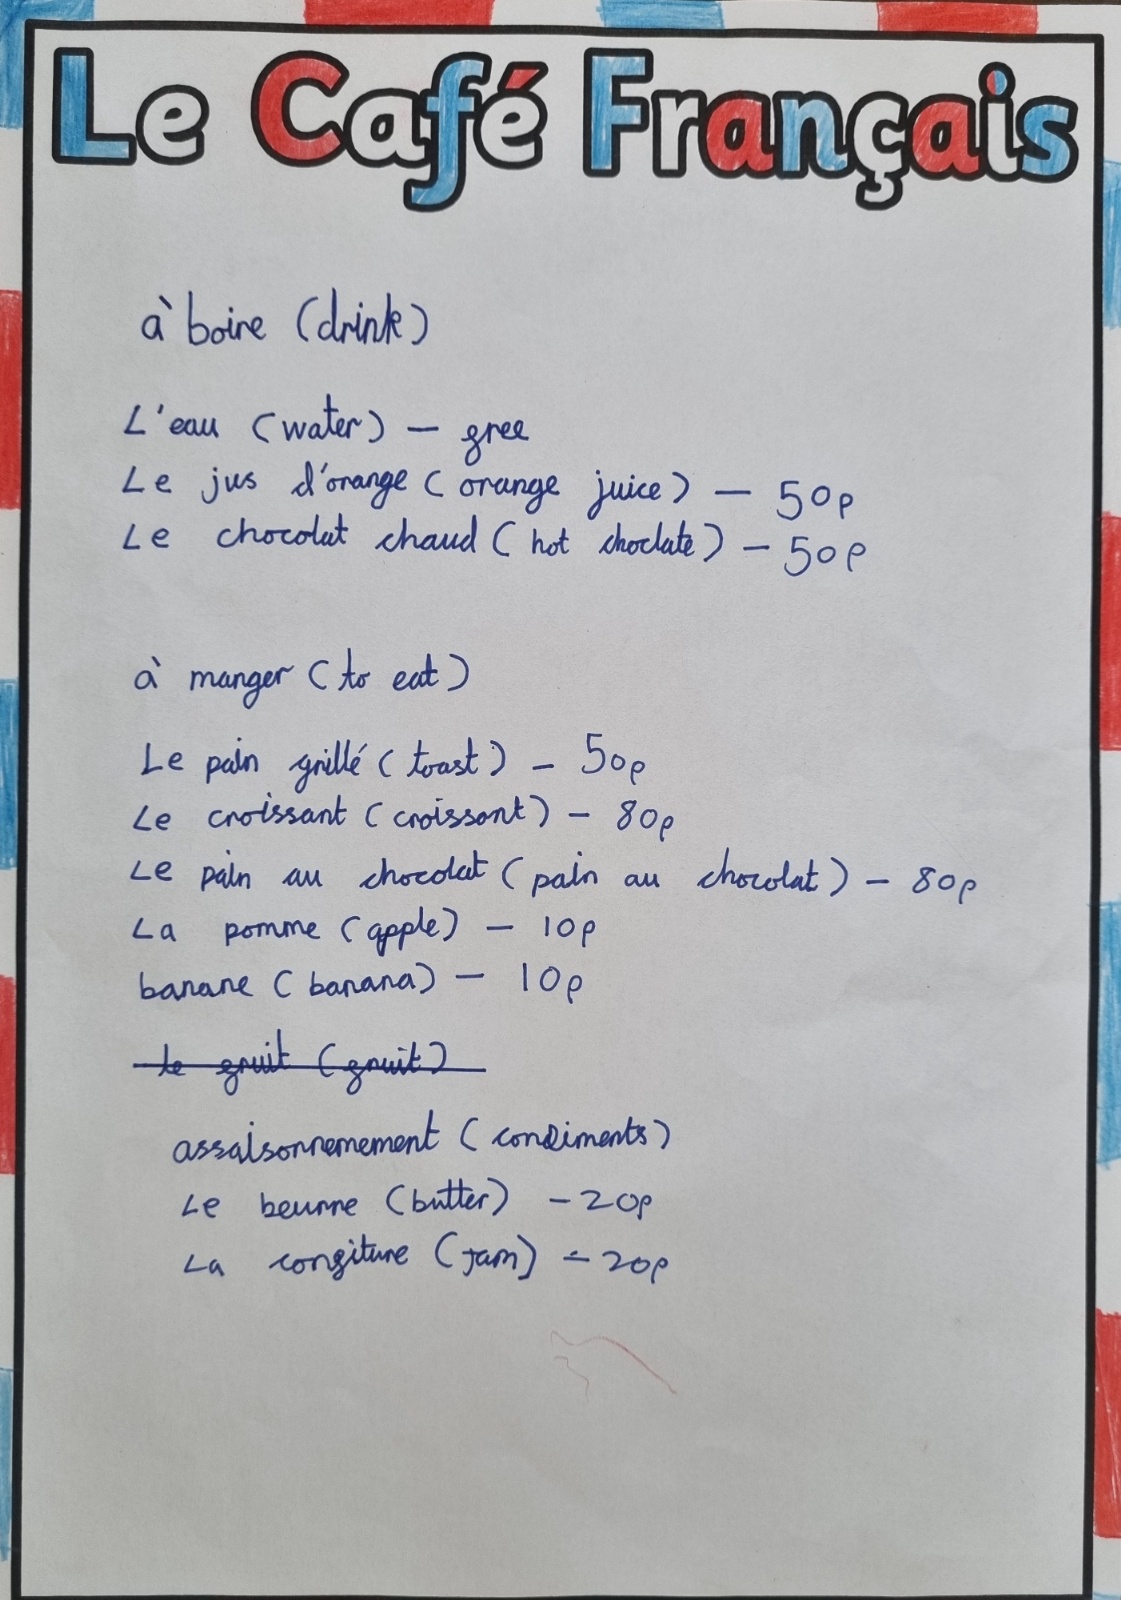 Le Café Français
à boire (drink)
L'eau (water) – free
Le jus d'orange (orange juice) – 50p
Le chocolat chaud (hot choclate) – 50p
à manger (to eat)
Le pain grillé (toast) – 50p
Le croissant (croissant) – 80p
Le pain au chocolat (pain au chocolat) – 80p
La pomme (apple) – 10p
banane (banana) – 10p
le fruit (fruit)
assaisonnemement (condiments)
Le beurre (butter) – 20p
La confiture (jam) – 20p